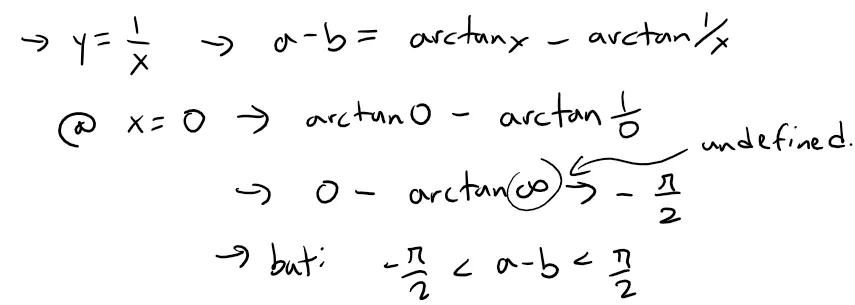 → y = 1/x → a-b = arctan x - arctan 1/x
@ x = 0 → arctan 0 - arctan 1/0
undefined.
→ 0 - arctan(∞) → - π/2
→ but: -π/2 < a-b < π/2